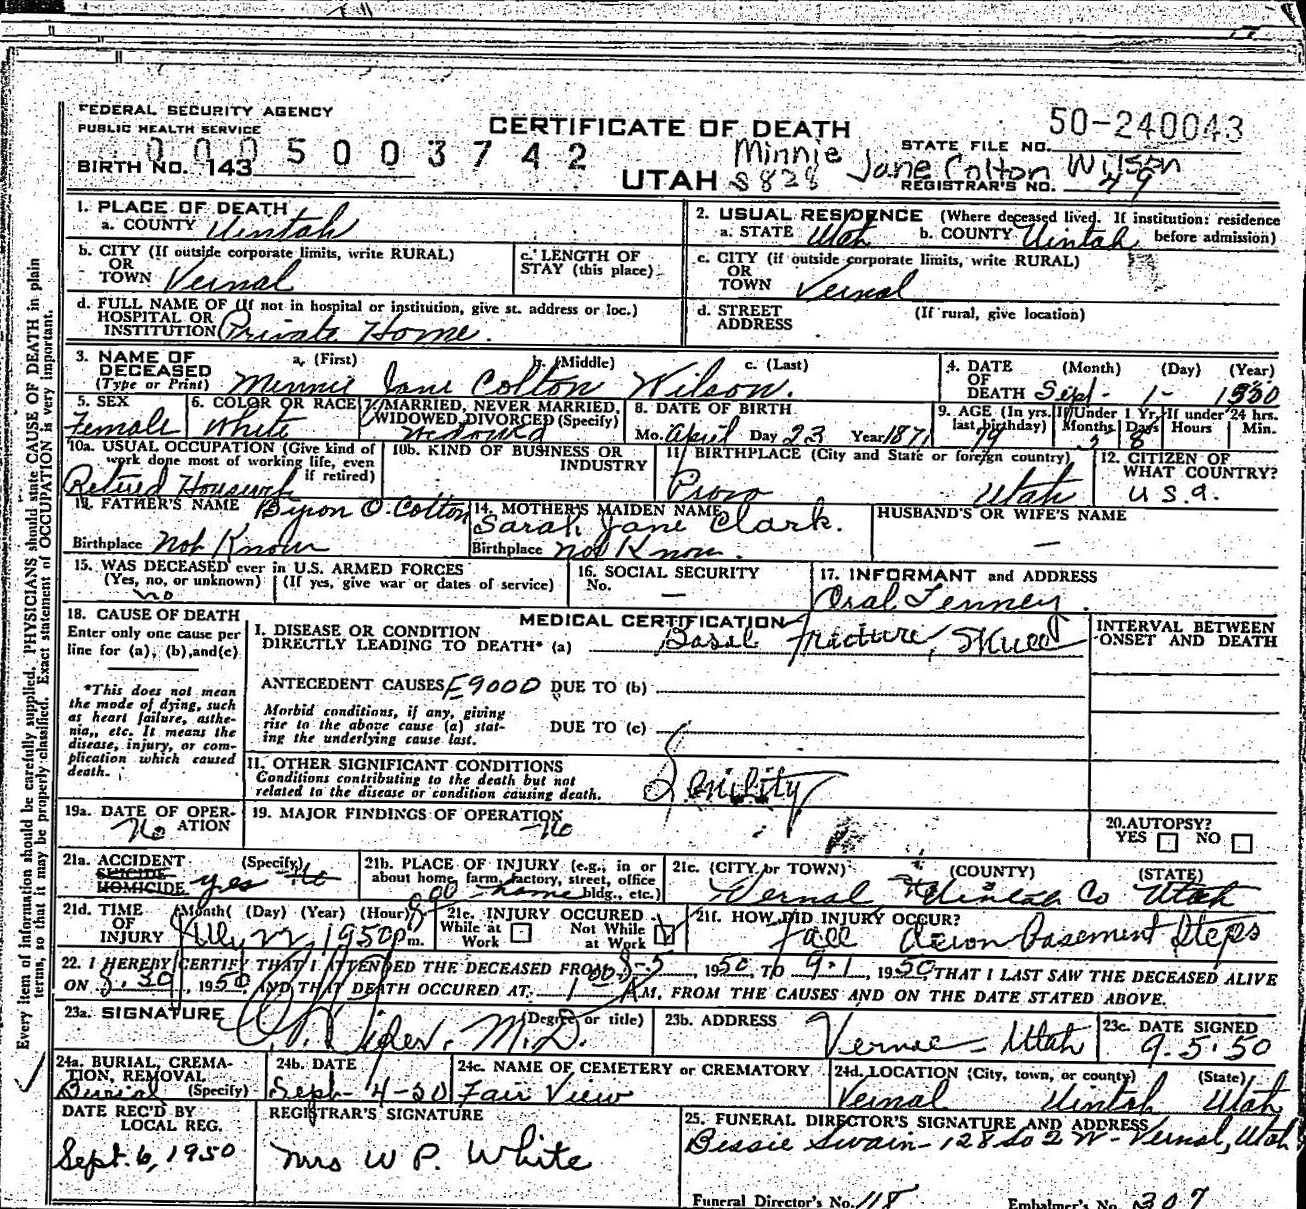 FEDERAL SECURITY AGENCY
PUBLIC HEALTH SERVICE
CERTIFICATE OF DEATH
50-240043
STATE FILE NO.
0005003742
BIRTH NO. 143
UTAH
Minnie Jane Colton Wilson
S828
REGISTRAR'S NO. 49
1. PLACE OF DEATH
a. COUNTY Uintah
2. USUAL RESIDENCE (Where deceased lived. If institution: residence before admission)
a. STATE Utah b. COUNTY Uintah
b. CITY (If outside corporate limits, write RURAL)
OR
TOWN Vernal
c. LENGTH OF
STAY (this place)
c. CITY (if outside corporate limits, write RURAL)
OR
TOWN Vernal
d. FULL NAME OF (If not in hospital or institution, give st. address or loc.)
HOSPITAL OR
INSTITUTION Private Home.
d. STREET (If rural, give location)
ADDRESS
3. NAME OF DECEASED
(Type or Print)
a. (First) b. (Middle) c. (Last)
Minnie Jane Colton Wilson.
4. DATE OF DEATH (Month) (Day) (Year)
Sept- 1- 1950
5. SEX
Female
6. COLOR OR RACE
White
7. MARRIED, NEVER MARRIED,
WIDOWED, DIVORCED (Specify)
Widowed
8. DATE OF BIRTH
Mo. April Day 23 Year 1871
9. AGE (In yrs. last birthday) If Under 1 Yr. If under 24 hrs.
Months Days Hours Min.
79 8
10a. USUAL OCCUPATION (Give kind of
work done most of working life, even
if retired)
Retired Housewife
10b. KIND OF BUSINESS OR
INDUSTRY
11. BIRTHPLACE (City and State or foreign country)
Provo Utah
12. CITIZEN OF
WHAT COUNTRY?
U S.A.
13. FATHER'S NAME Byron O. Colton
Birthplace Not Know
14. MOTHER'S MAIDEN NAME
Sarah Jane Clark.
Birthplace not Know.
HUSBAND'S OR WIFE'S NAME
—
15. WAS DECEASED ever in U.S. ARMED FORCES
(Yes, no, or unknown) (If yes, give war or dates of service)
no
16. SOCIAL SECURITY
No. —
17. INFORMANT and ADDRESS
Oral Tenney.
18. CAUSE OF DEATH
Enter only one cause per
line for (a), (b), and (c)
*This does not mean
the mode of dying, such
as heart failure, asthe-
nia, etc. It means the
disease, injury, or com-
plication which caused
death.
MEDICAL CERTIFICATION
I. DISEASE OR CONDITION
DIRECTLY LEADING TO DEATH* (a) Basal fracture, Skull
ANTECEDENT CAUSES E900D DUE TO (b)
Morbid conditions, if any, giving
rise to the above cause (a) stat-
ing the underlying cause last.
DUE TO (c)
II. OTHER SIGNIFICANT CONDITIONS
Conditions contributing to the death but not
related to the disease or condition causing death.
Senility
INTERVAL BETWEEN
ONSET AND DEATH
19a. DATE OF OPER-
ATION
No
19. MAJOR FINDINGS OF OPERATION
-No
20. AUTOPSY?
YES NO
21a. ACCIDENT (Specify)
SUICIDE
HOMICIDE yes No
21b. PLACE OF INJURY (e.g., in or
about home, farm, factory, street, office
bldg., etc.)
home
21c. (CITY or TOWN) (COUNTY) (STATE)
Vernal Uintah Co Utah
21d. TIME OF INJURY (Month) (Day) (Year) (Hour)
July 22 1950 m.
21e. INJURY OCCURED
While at Work Not While at Work
21f. HOW DID INJURY OCCUR?
Fall down Basement Steps
22. I HEREBY CERTIFY THAT I ATTENDED THE DECEASED FROM 8-5, 1950, TO 9-1, 1950 THAT I LAST SAW THE DECEASED ALIVE
ON 8.30, 1950 AND THAT DEATH OCCURED AT 1 00 A M. FROM THE CAUSES AND ON THE DATE STATED ABOVE.
23a. SIGNATURE (Degree or title)
M.D.
23b. ADDRESS
Vernal - Utah
23c. DATE SIGNED
9.5.50
24a. BURIAL, CREMA-
TION, REMOVAL
(Specify)
Burial
24b. DATE
Sept- 4-50
24c. NAME OF CEMETERY or CREMATORY
Fair View
24d. LOCATION (City, town, or county) (State)
Vernal Uintah Utah
DATE REC'D BY
LOCAL REG.
Sept. 6, 1950
REGISTRAR'S SIGNATURE
Mrs W P. White
25. FUNERAL DIRECTOR'S SIGNATURE AND ADDRESS
Bessie Swain- 128 So 2 W - Vernal, Utah
Funeral Director's No. 118 Embalmer's No. 307
Every item of information should be carefully supplied. PHYSICIANS should state CAUSE OF DEATH in plain
terms, so that it may be properly classified. Exact statement of OCCUPATION is very important.